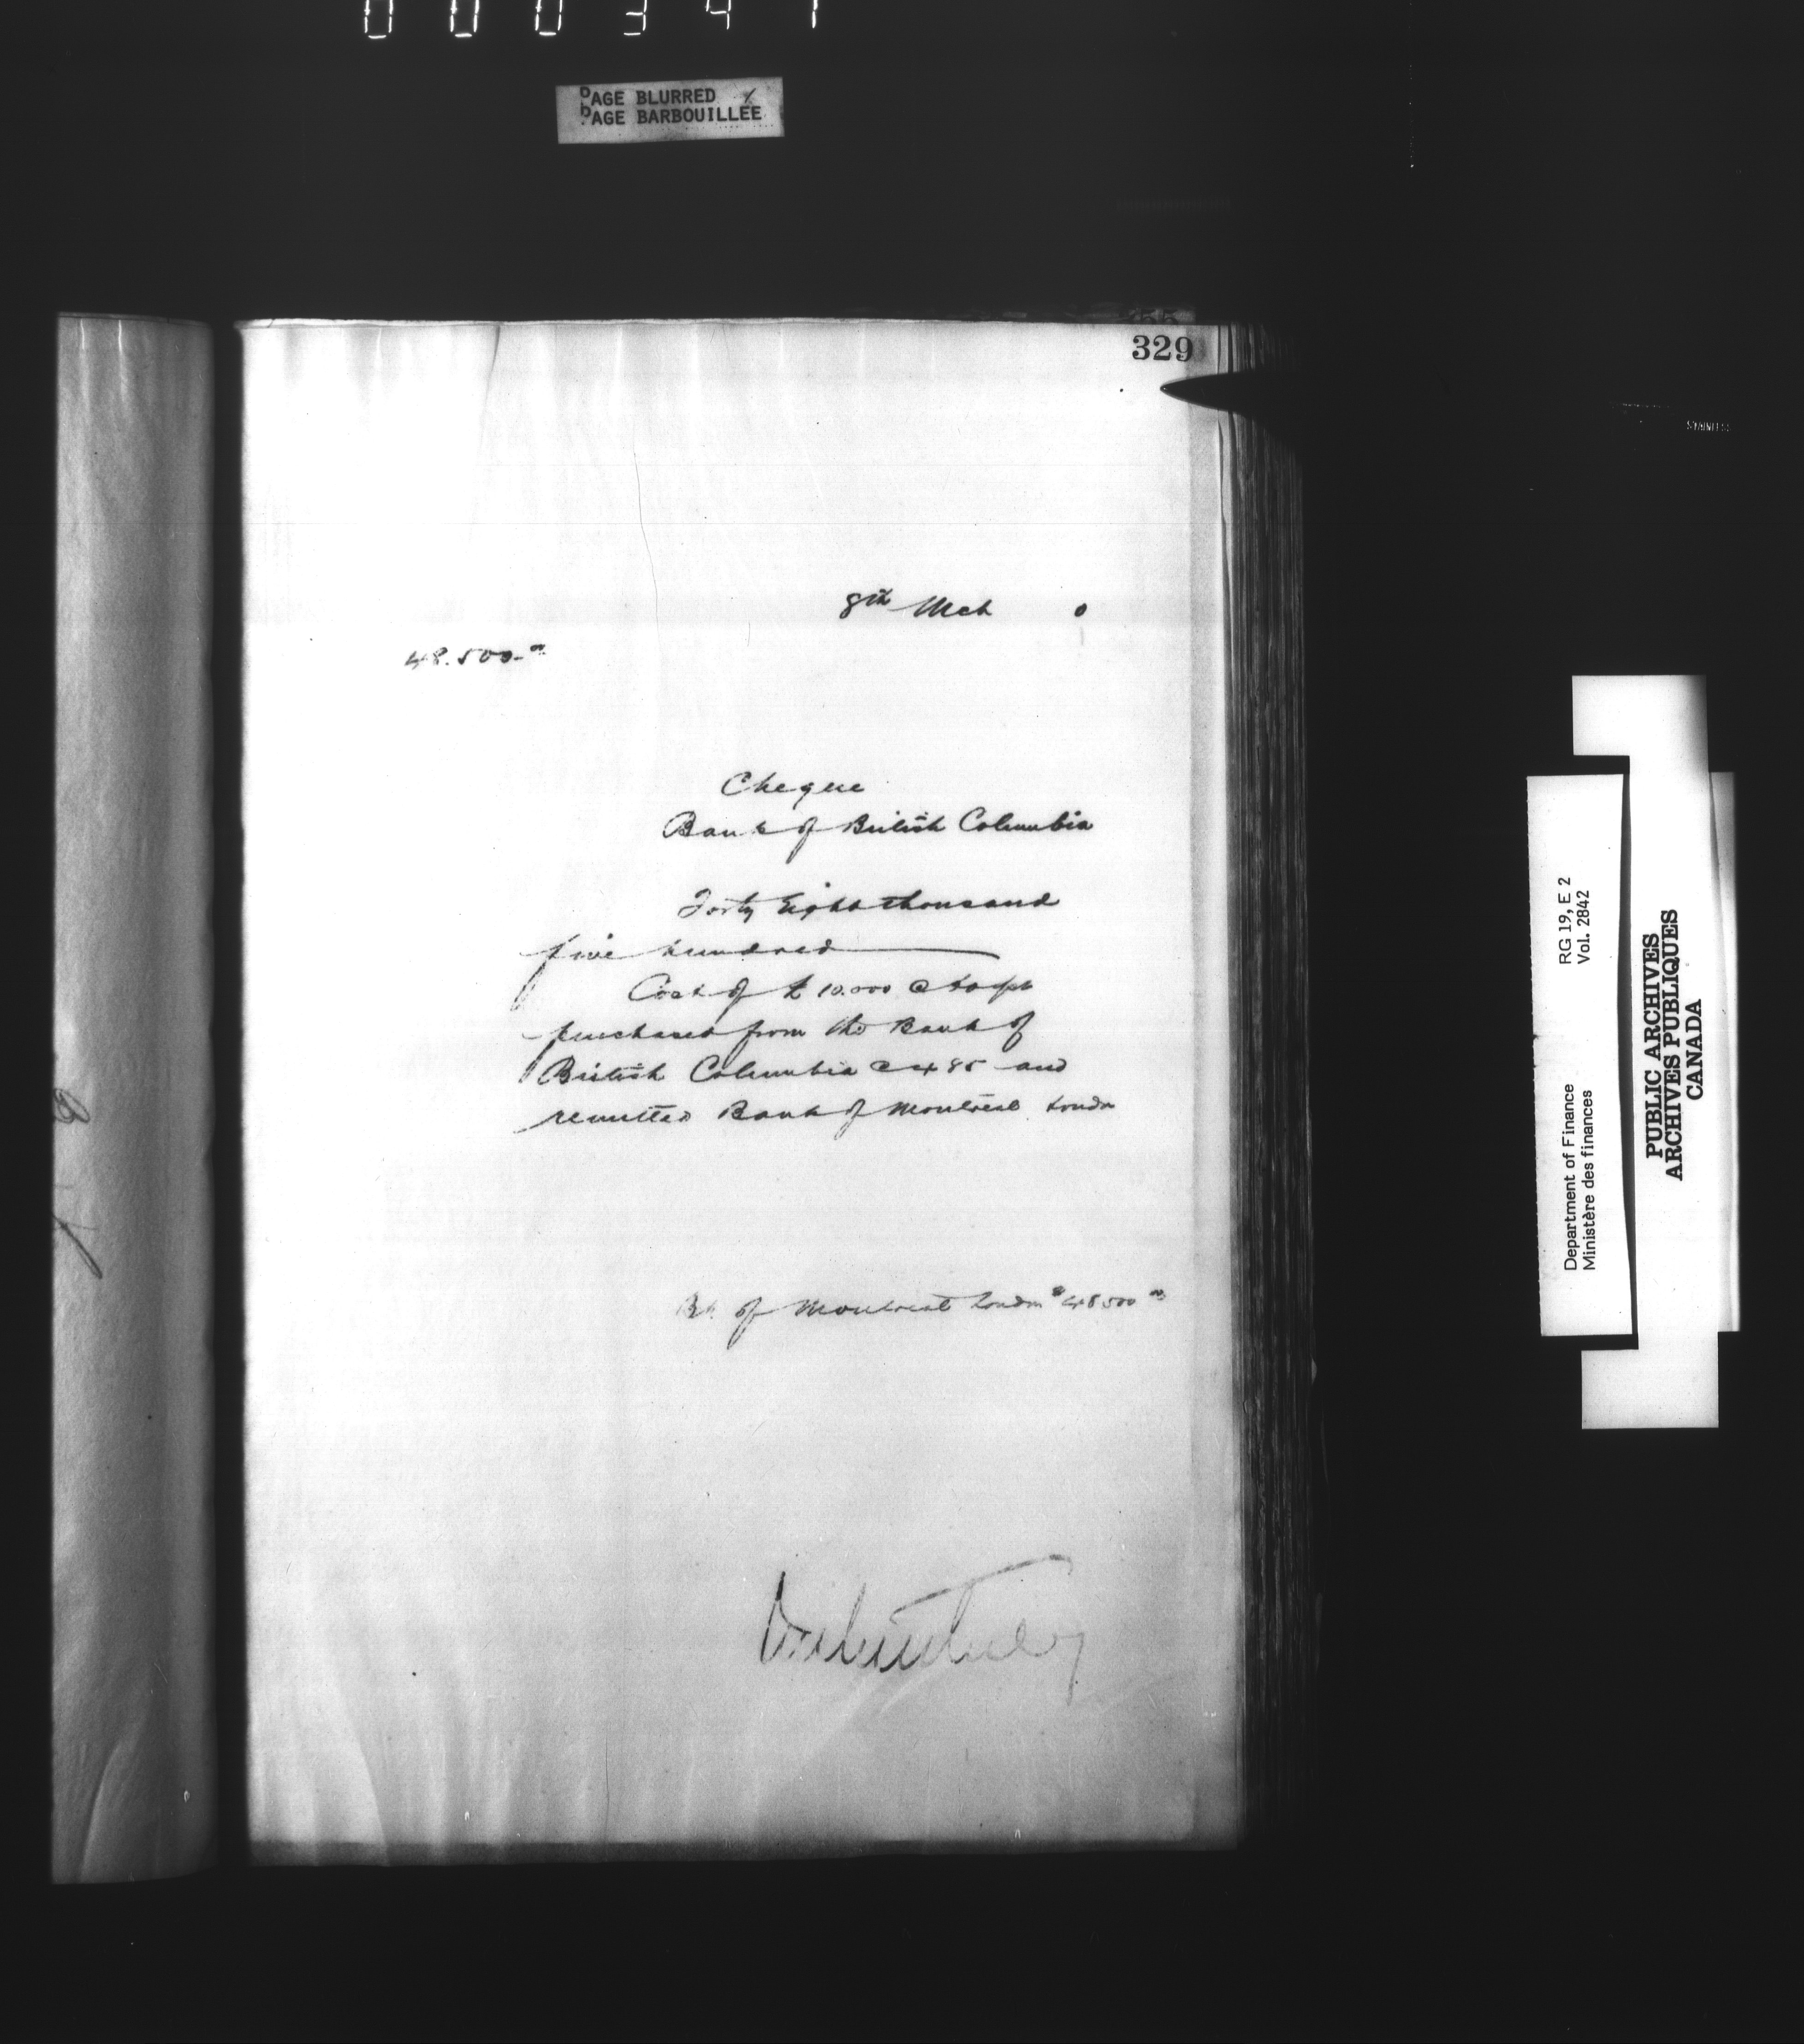 PAGE BLURRED
PAGE BARBOUILLÉE
329
8th Mch 0
48.500.00
Cheque
Bank of British Columbia
Forty Eight thousand
five hundred
Cost of £ 10.000 @
purchased from the Bank of
British Columbia @ 4 85 and
remitted Bank of Montreal London
Bk. of Montreal London $48500 00
RG 19, E 2
Vol. 2842
Department of Finance
Ministère des finances
PUBLIC ARCHIVES
ARCHIVES PUBLIQUES
CANADA